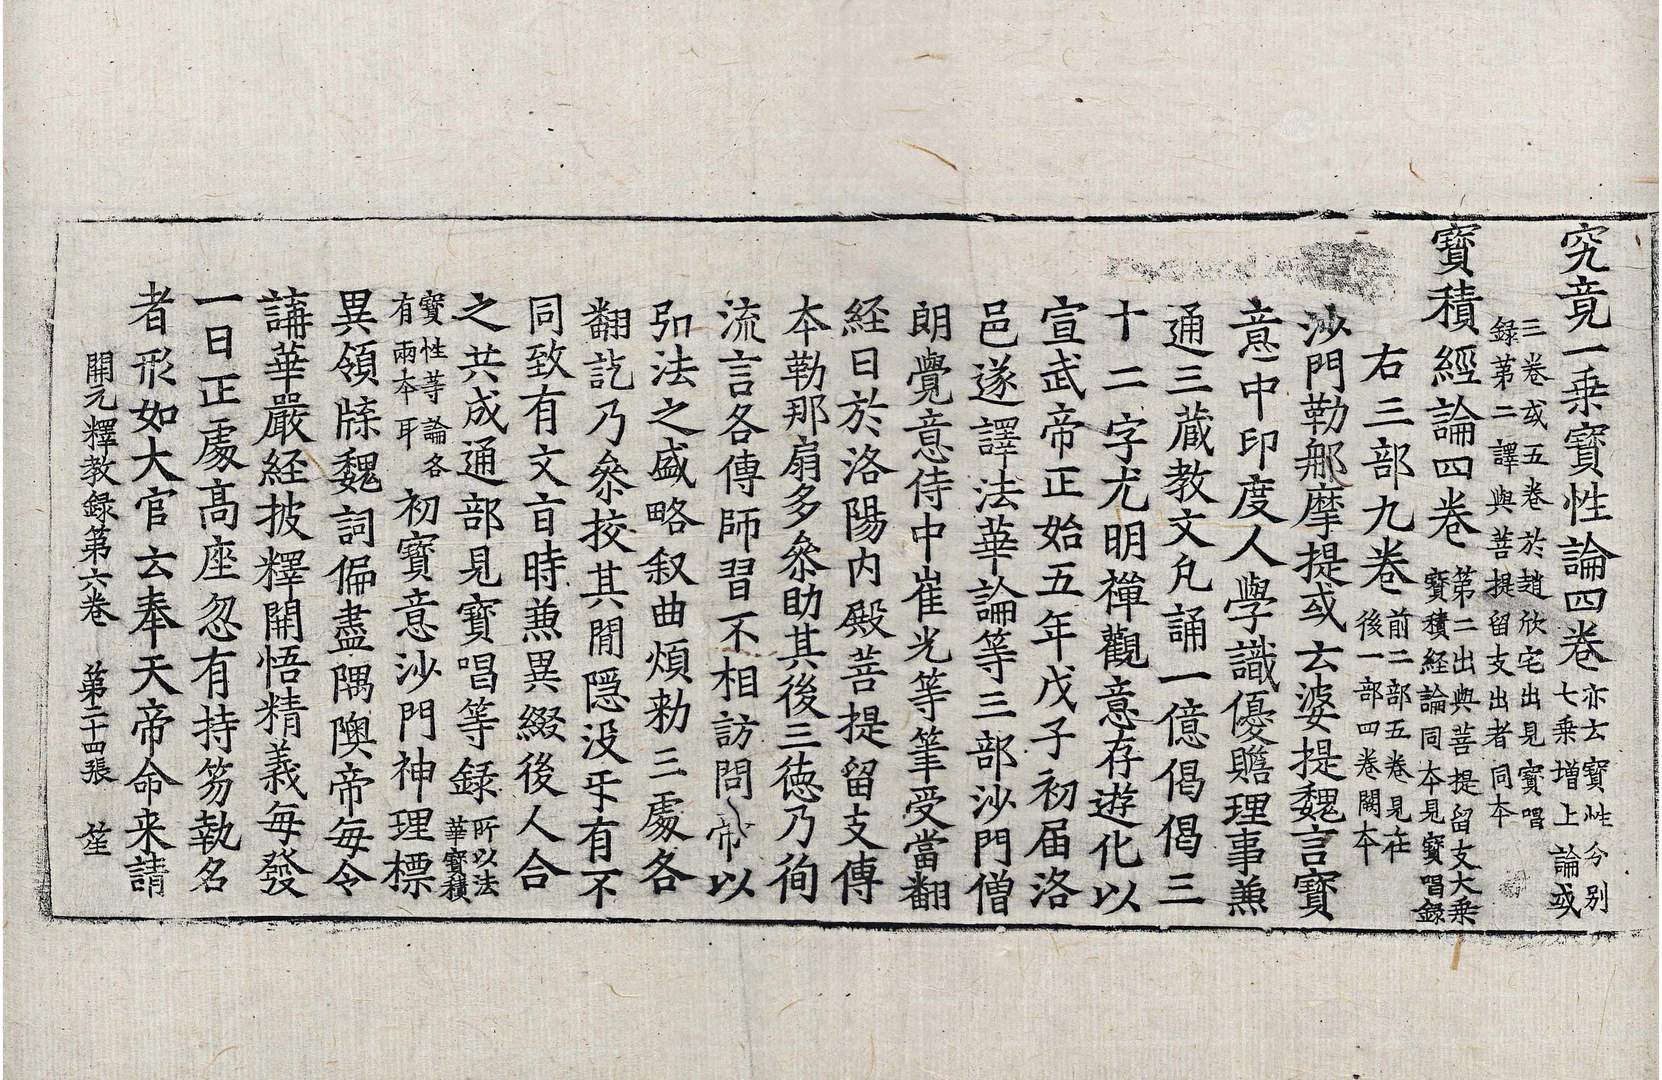 究竟一乗寶性論四巻亦云寶性今別七乗増上論或
三巻或五巻於趙欣宅出見寶唱録第二譯與菩提留支出者同本
寶積經論四巻第二出與菩提留支大乗寶積経論同本見寶唱録
右三部九巻前二部五巻見在後一部四巻闕本
沙門勒那摩提或云婆提魏言寶
意中印度人學識優贍理事兼
通三蔵教文凡誦一億偈偈三
十二字尤明禅觀意存遊化以
宣武帝正始五年戊子初届洛
邑遂譯法華論等三部沙門僧
朗覺意侍中崔光等筆受當翻
経日於洛陽内殿菩提留支傳
本勒那扇多叅助其後三徳乃徇
流言各傳師習不相訪問帝以
弘法之盛略叙曲煩勑三處各
翻訖乃叅挍其閒隠没㸦有不
同致有文㫖時兼異綴後人合
之共成通部見寶唱等録所以法華寶積
寶性等論各有兩本耳初寶意沙門神理標
異領牒魏詞偏盡隅隩帝毎令
講華嚴経披釋開悟精義毎發
一日正處高座忽有持笏執名
者形如大官云奉天帝命来請
開元釋教録第六巻　第二十四張　笙